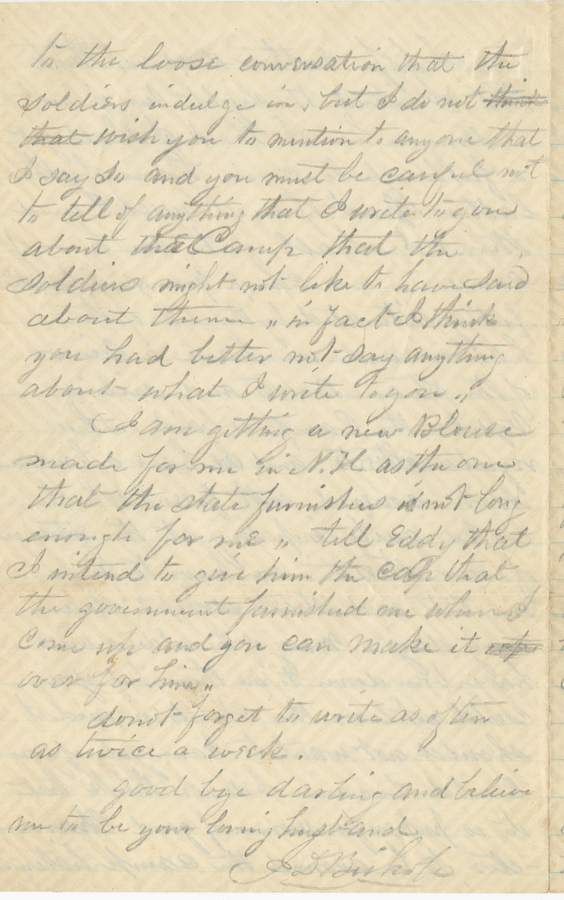 to the loose conversation that the
soldiers indulge in, but I do not think
that wish you to mention to anyone that
I say so and you must be careful not
to tell of anything that I write to you
about the Camp that the
soldiers might not like to have said
about them " in fact I think
you had better not say anything
about what I write to you "
I am getting a new Blouse
made for me in N.H. as the one
that the state furnishes is not long
enough for me " tell Eddy that
I intend to give him the cap that
the government furnished me when I
come up and you can make it
over for him "
do not forget to write as often
as twice a week.
good bye darling and believe
me to be your loving husband